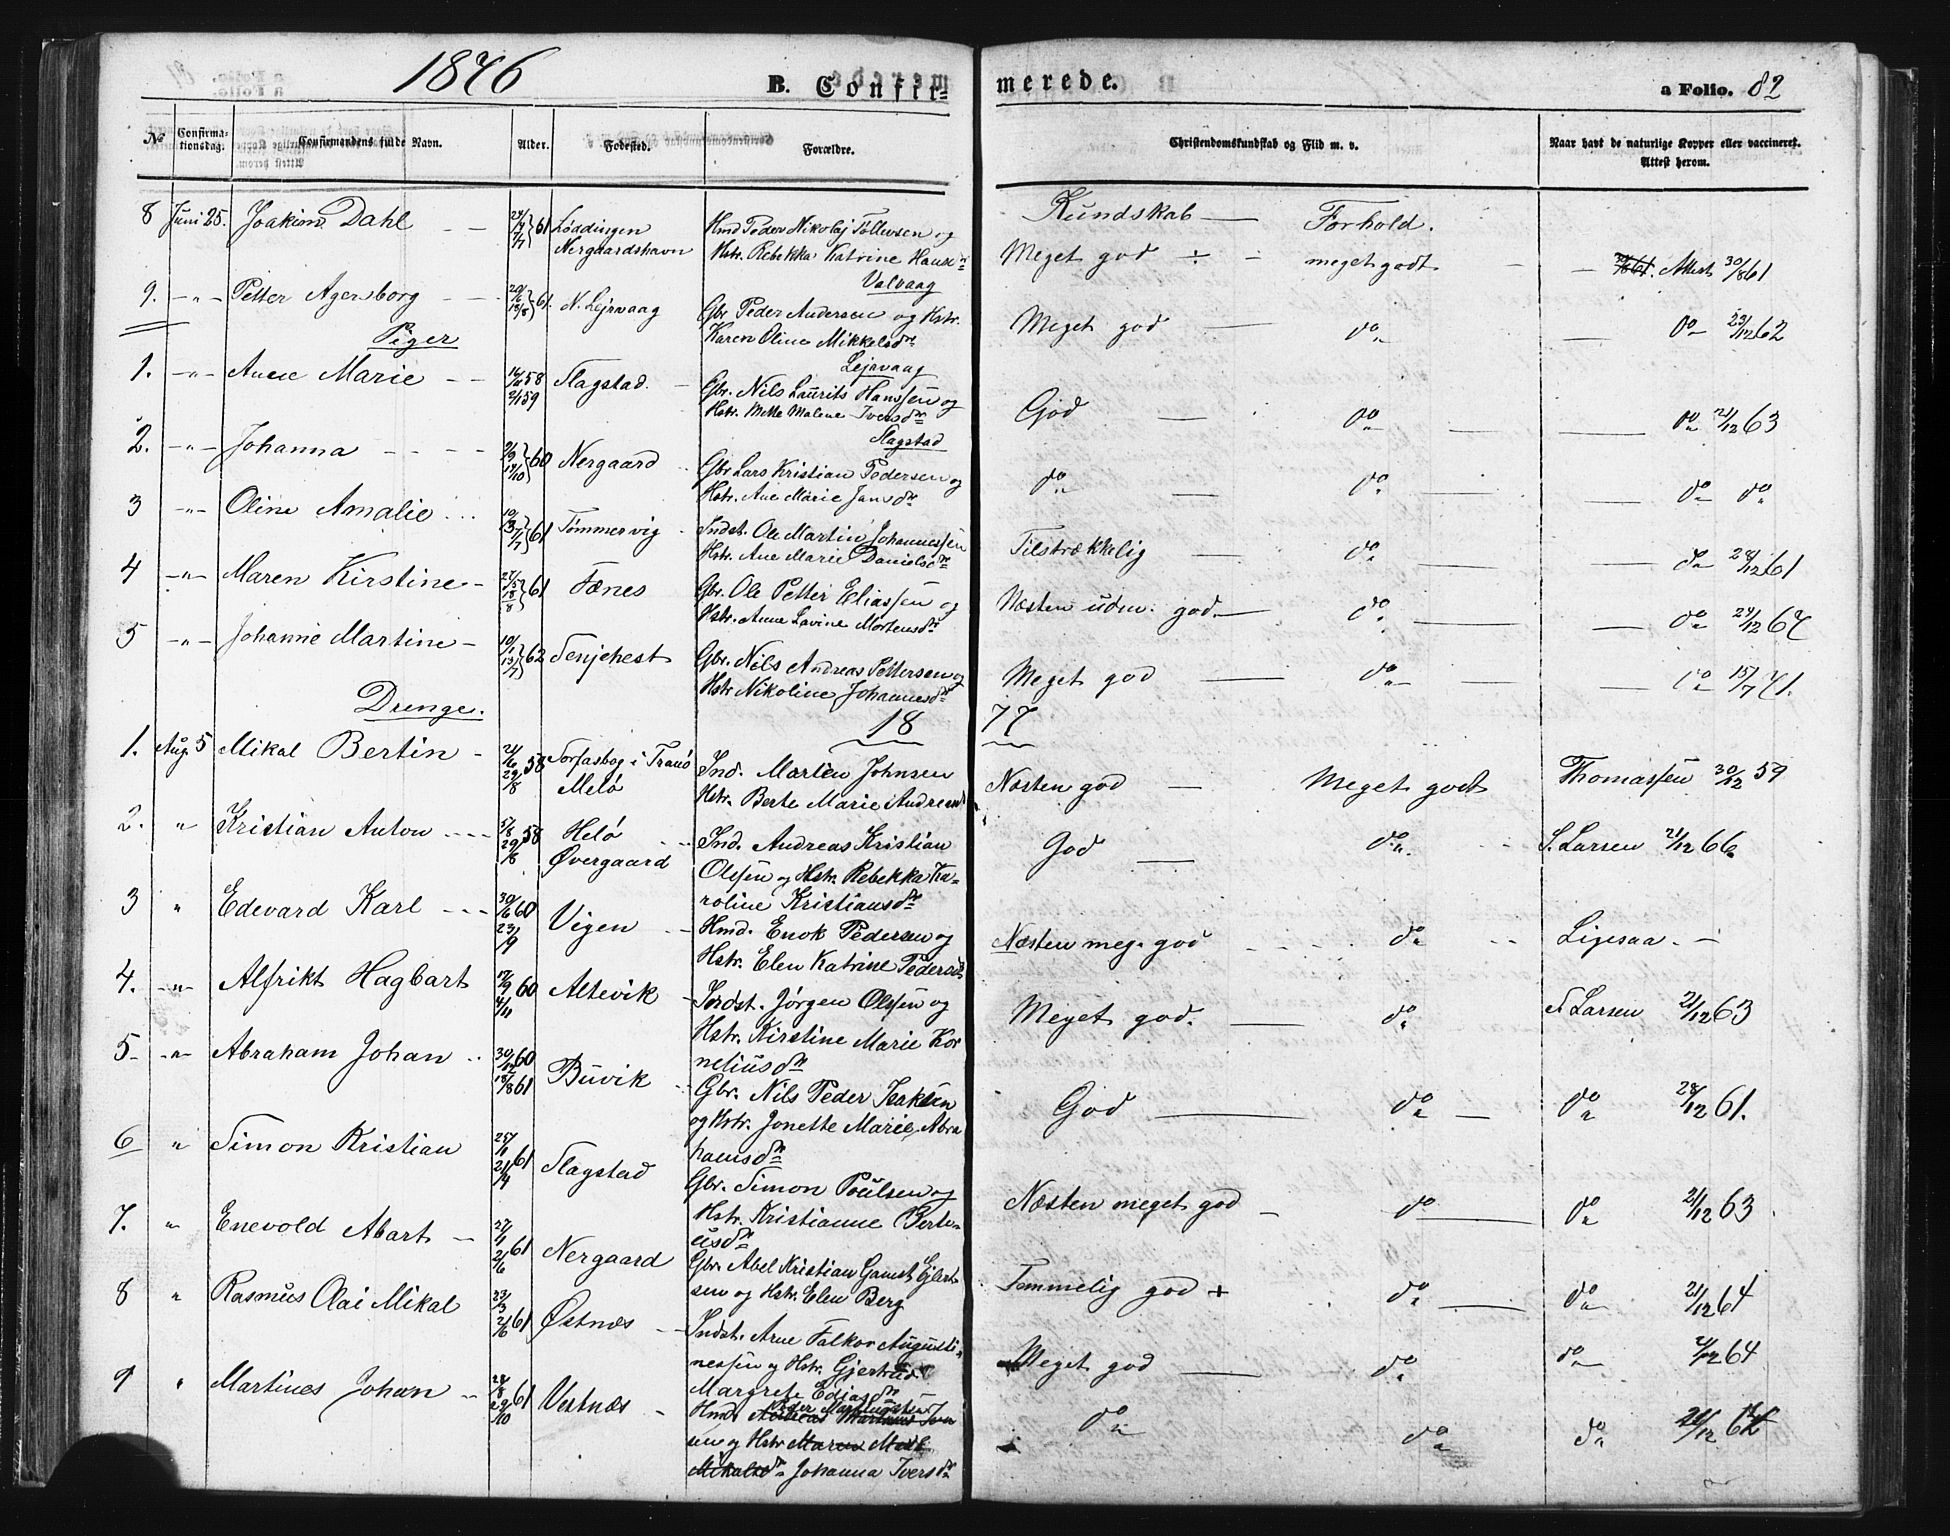 1876 B. Confirmerede. a Folio. 82
No Confirmationsdag. Confirmandens fulde Navn. Alder. Fødested. Forældre. Christendomskundskab og Flid m. v. Naar havt de naturlige Kopper eller vaccineret. Attest herom.
Kundskab — Forhold.
8 Juni 25. Joakim Dahl 61 Løddingen Nergaardshavn Hmd Peder Nikolaj Tollevsen og
Hstr. Rebekka Katrine Hansdr Meget god ÷ meget godt Attest 30/8 61
Valvaag
9. -"- Petter Agersborg 61. N. Lejrvaag Gbr Peder Andersen og Hstr.
Karen Oline Mikkelsdr Meget god — do do 23/12 62
Piger
Lejrvaag
1. -"- Anne Marie 58 59 Slagstad. Gbr. Nils Laurits Hanssen og
Hstr. Mette Malene Iversdr God — do do 21/12 63
Slagstad
2. -"- Johanna 60 Nergaard Gbr Lars Kristian Pedersen og
Hstr. Ane Marie Jansdr do — do do do
3 -"- Oline Amalie 61 Tømmervig Indst. Ole Martin Johannessen
Hstr. Ane Marie Danielsdr Tilstrækkelig — do do 28/12 61
4 -"- Maren Kirstine 61 Fænes Gbr. Ole Petter Eliassen og
Hstr. Anne Lavine Mortensdr Næsten udm. god — do do 67
5 -"- Johanne Martine 62 Senjehest Gbr. Nils Andreas Pettersen og
Hstr Nikoline Johannesdr Meget god — do do 15/7 71.
Drenge.
18 77
1. Aug. 5 Mikal Bertin 58 Torfasbog i Tranø Melø Ind. Martin Johnsen
Hstr. Berte Marie Andreasd Næsten god — Meget godt Thomassen 30/12 59
2. " Kristian Anton 58 Helø Øvergaard Ind. Andreas Kristian
Olsen og Hstr. Rebekka Ka-
roline Kristiansdr God — do S. Larsen 21/12 66
3 " Edevard Karl 30/6 60 23/9 Vigen Hmd. Enok Pedersen og
Hstr. Elen Katrine Pedersd Næsten meg. god do Ligesaa. —
4. -"- Alfrikt Hagbart 60 4/11 Altevik Indst. Jørgen Olsen og
Hstr. Kirstine Marie Kor
neliusdr Meget god. — do S Larsen 21/12 63
5- -"- Abraham Johan 30/12 60 18/8 61 Buvik Gbr. Nils Peder Isaksen
og Hstr. Jonette Marie Abra
hamsdr God — do — do 28/12 61.
6 " Simon Kristian 61 Slagstad Gbr. Simon Poulsen og
Hstr. Kristianne Berte-
usdr Næsten meget god — do do 21/12 63
7. " Enevold Abart 61 Nergaard Gbr Abel Kristian Gamst Ejlert
sen og Hstr. Elen Berg Temmelig god + do do 21/12 64
8 " Rasmus Olai Mikal 23/3 61 Østnæs Indst. Arne Falkor Augusti-
nessen og Hstr. Gjertrud
Margrete Ediasdr Meget god — do do 64
9 " Martines Johan 61 Vestnæs Hmd.
sen og Hstr Maren
Mikalsdr Johanna Iversdr do do do